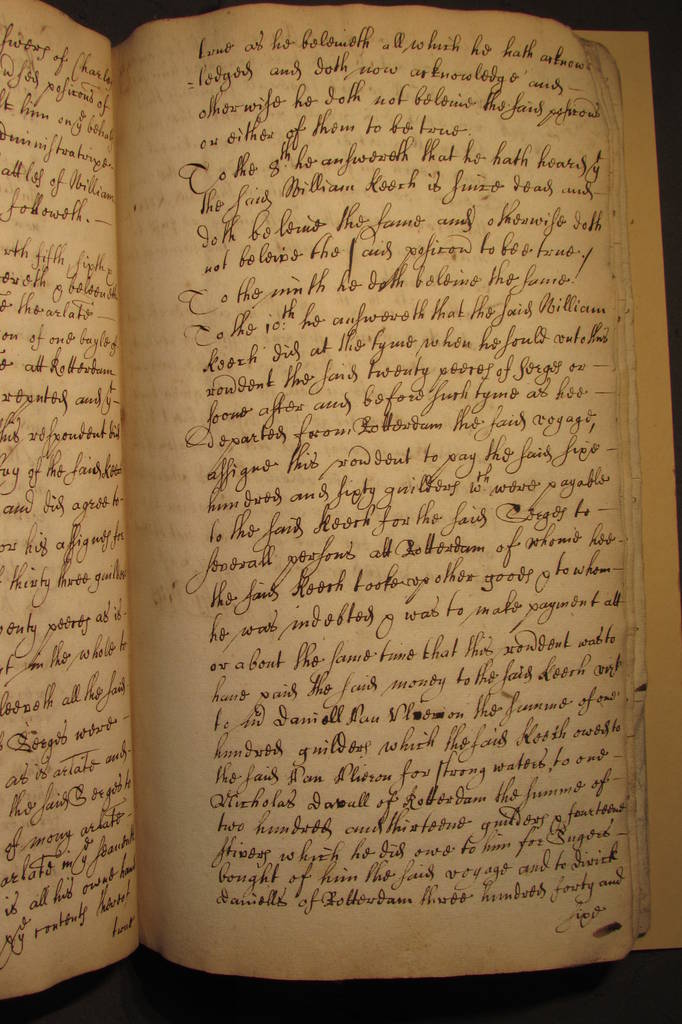 swers of Charles
him on ye behal
Administratrixe
attles of William
followeth. —
rth fifth, sixth &
ereth & beleeveth
e the arlate —
on of one bayle of
e att Rotterdam
reputed and yt
this respondent did
uy of the said Keech
and did agree to
or his assignes for
thirty three guilders
wenty peeces as is
t in the whole to
leeveth all the said
Serges were —
as is arlate and
the said Serges to
of mony arlate
arlate in ye
is all his owne hand
ye contents hereof
true
true as he beleiveth all which he hath acknow
=ledged and doth now acknowledge and —
otherwise he doth not beleive the said posicons
or either of them to be true.
To the 8th he answereth that he hath heard yt
the said William Keech is since dead and
doth beleive the same and otherwise doth
not beleive the said posicon to bee true /
To the ninth he doth beleive the same /
To the 10th he answereth that the said William
Keech did at the tyme when he sould unto this
rondent the said twenty peeces of Serges or —
soone after and before such tyme as hee —
departed from Rotterdam the said voyage,
assigne this rondent to pay the said sixe
hundred and sixty guilders wch were payable
to the said Keech for the said Serges to —
severall persons att Rotterdam of whome hee
the said Keech tooke up other goods & to whom
he was indebted & was to make payment att
or about the same time that this rondent was to
have paid the said money to the said Keech vizt
to Daniell Van Vlieron the summe of one
hundred guilders which the said Keech owed to
the said Van Vlieron for strong waters, to one
Nicholas Davall of Rotterdam the summe of
two hundred and thirteene guilders & fourteene
stivers which he did owe to him for Sugers
bought of him the said voyage and to Dirick
Daniells of Rotterdam three hundred forty and
sixe